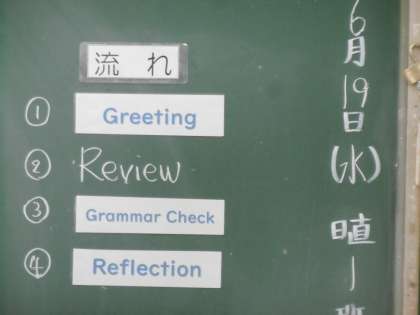 流れ
① Greeting
② Review
③ Grammar Check
④ Reflection
6月19日(水)